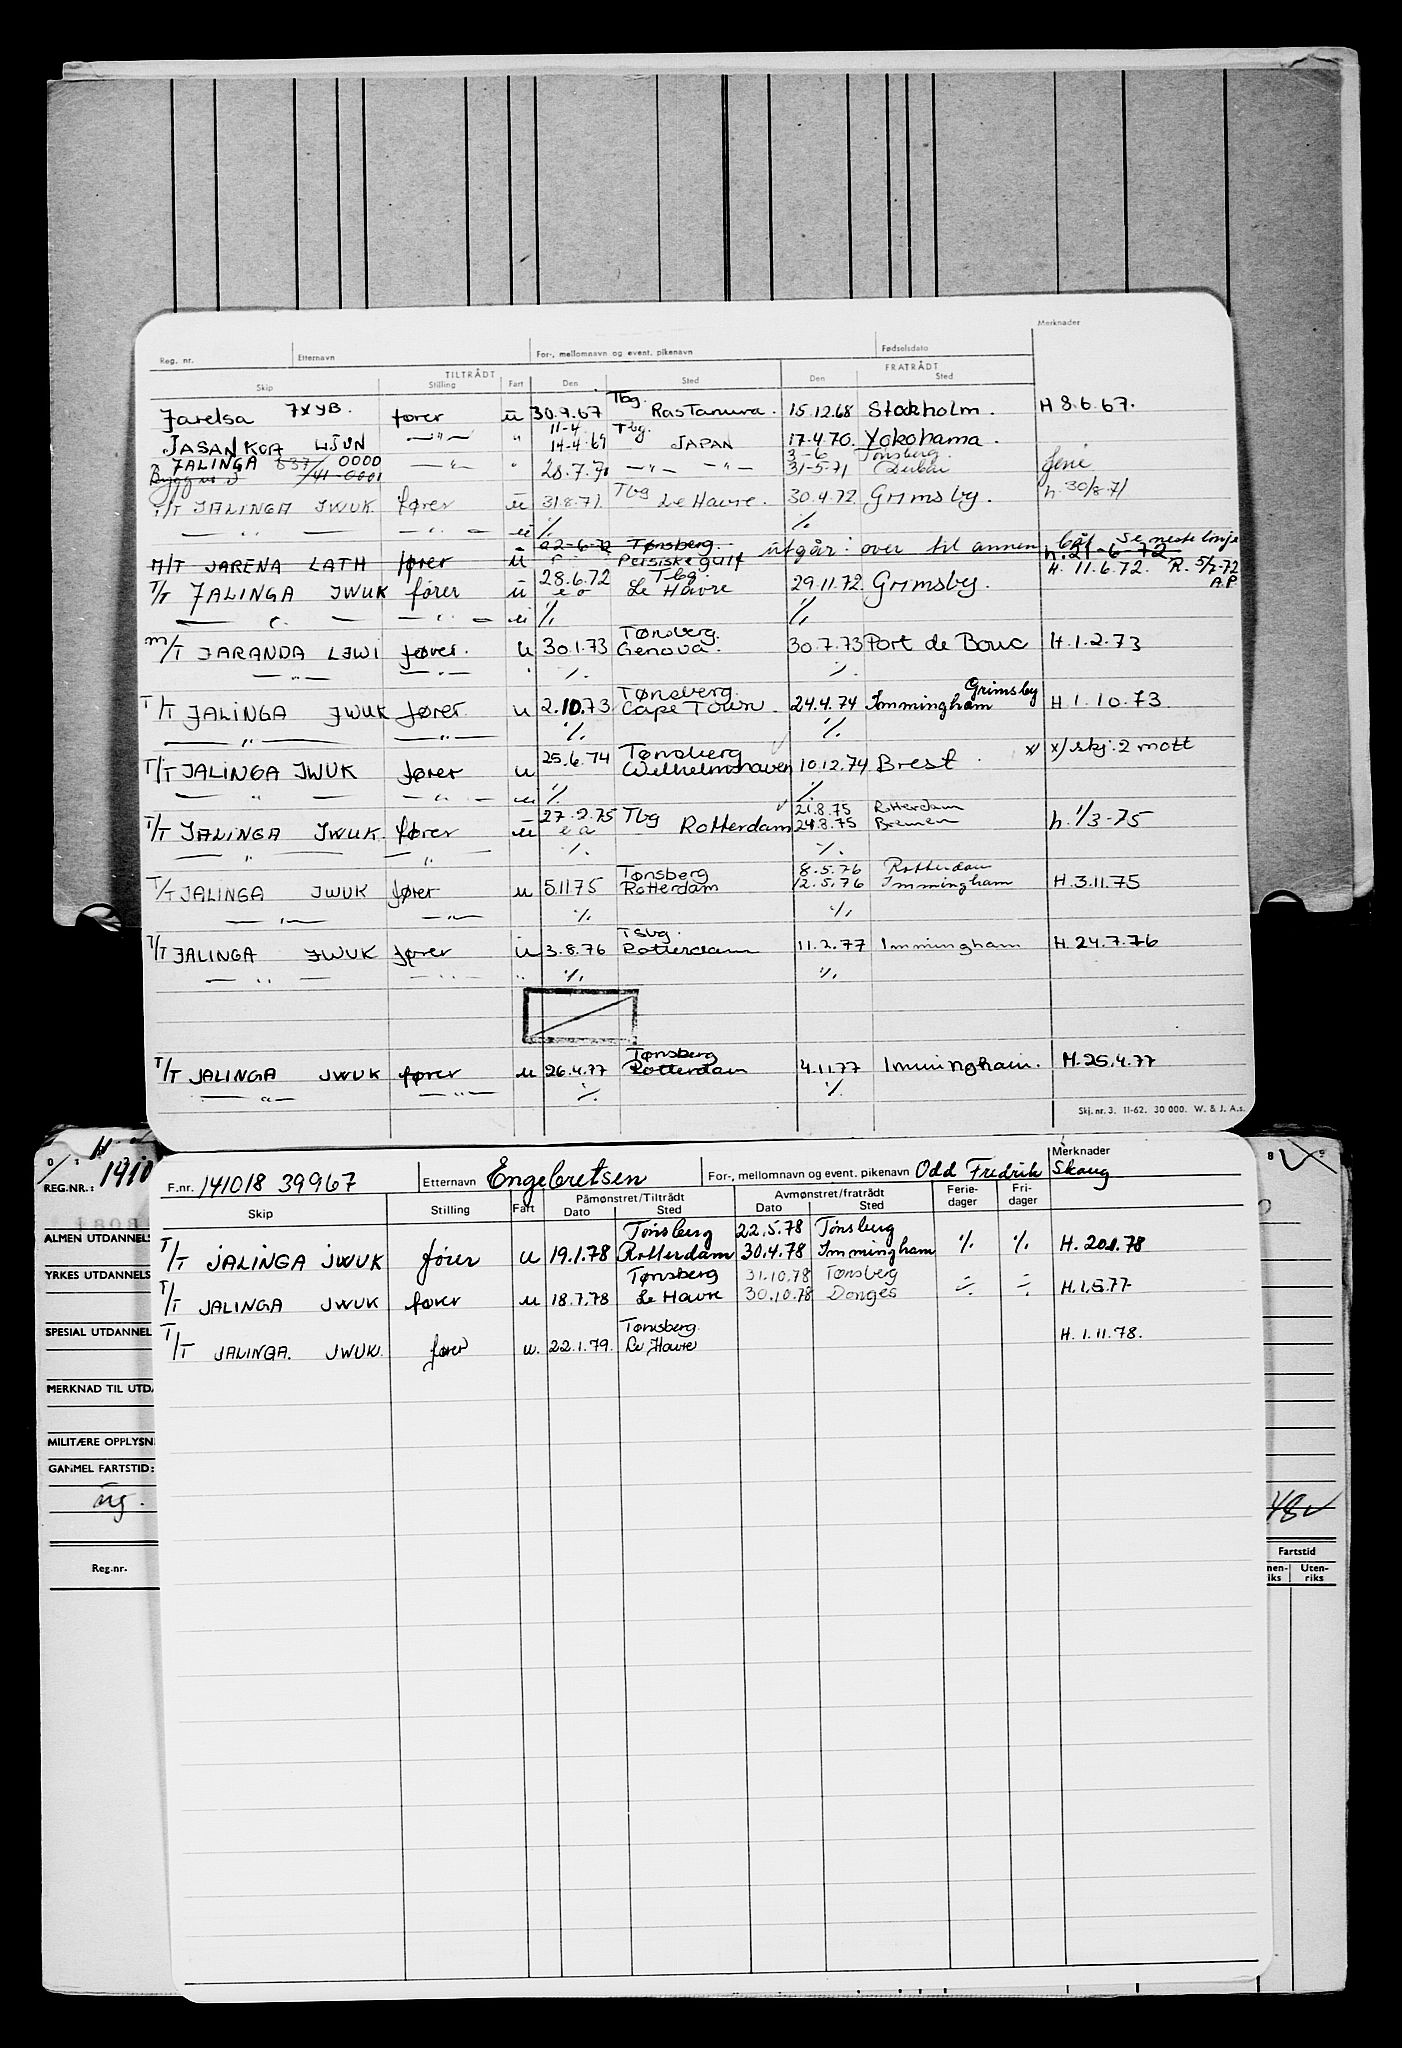 Merknader
Reg. nr. Etternavn For-, mellomnavn og event. pikenavn Fødselsdato
TILTRÅDT FRATRÅDT
Skip Stilling Fart Den Sted Den Sted
Jarelsa JXYB. fører u 30.9.67 Tbg. Ras Tanura. 15.12.68 Stockholm. H 8.6.67.
11-4
JASANKOA LJUN —"— " 14-4-69 Tbg. JAPAN 17.4.70. Yokohama.
3-6 Tønsberg.
JALINGA 637/ 0000 —"— " 28.7.70 —"— —"— 31-5-71 Dubai ferie
Bygg no /41-0001
T/T JALINGA JWUK fører u 31.8.71. Tbg Le Havre. 30.4.72 Grimsby. h. 30/8.71
— " — — " — u % %
22-6-72 Tønsberg. utgår: over til annen båt Se neste linje
M/T JARENA LATH fører u Persiske gulf h. 21-6-72
28.6.72 Tbg. H. 11.6.72. R. 5/7-72
T/T JALINGA JWUK fører u e o Le Havre 29.11.72. Grimsby. A.P
— " — — " — u % %
M/T JARANDA LEWI fører. u 30.1.73 Tønsberg. Genova. 30.7.73 Port de Bouc H 1.2.73
— " — — " — " % %
Tønsberg. Grimsby
T/T JALINGA JWUK fører u 2.10.73 Cape Town. 24.4.74 Immingham H 1.10.73.
— " — — " — % %
25.6.74 Tønsberg x/ x/ skj. 2 mott
T/T JALINGA JWUK fører u Wilhelmshaven 10.12.74 Brest.
— " — — " — u % %
27.2.75 Tbg 21.8.75 Rotterdam
T/T JALINGA JWUK. fører u e a Rotterdam 24.8.75 Bremen h. 1/3-75
— " — — " — % %
Tønsberg 8.5.76 Rotterdam
T/T JALINGA JWUK fører u 5.11.75 Rotterdam 12.5.76 Immingham H.3.11.75
— " — — " — % %
Tsbg.
T/T JALINGA JWUK fører u 3.8.76 Rotterdam 11.2.77 Immingham H.24.7.76
— " — — " — " % %
Tønsberg
T/T JALINGA JWUK fører u 26.4.77 Rotterdam 4.11.77 Immingham. H.25.4.77
— " — — " — % %
Skj. nr. 3. 11-62. 30 000. W. & J. A.s.
REG.NR.: 1910
ALMEN UTDANNELS
YRKES UTDANNELS
SPECIAL UTDANNEL
MERKNAD TIL UTDA
MILITÆRE OPPLYSN
GAMMEL FARTSTID:
ug.
Reg.nr.
48
Fartstid
nen-iks Uten-riks
F.nr. 141018 39967 Etternavn Engebretsen For-, mellomnavn og event. pikenavn Odd Fredrik Skaug
Merknader
Påmønstret/Tiltrådt Avmønstret/fratrådt Ferie-dager Fri-dager
Skip Stilling Fart Dato Sted Dato Sted
Tønsberg 22.5.78 Tønsberg
T/T JALINGA JWUK fører u 19.1.78 Rotterdam 30.4.78 Immingham % % H. 20.1.78
Tønsberg 31.10.78 Tønsberg
T/T JALINGA JWUK fører u 18.7.78 Le Havre 30.10.78 Donges ÷ ÷ H.1.5.77
Tønsberg.
T/T JALINGA. JWUK. fører u. 22.1.79. Le Havre H. 1.11.78.